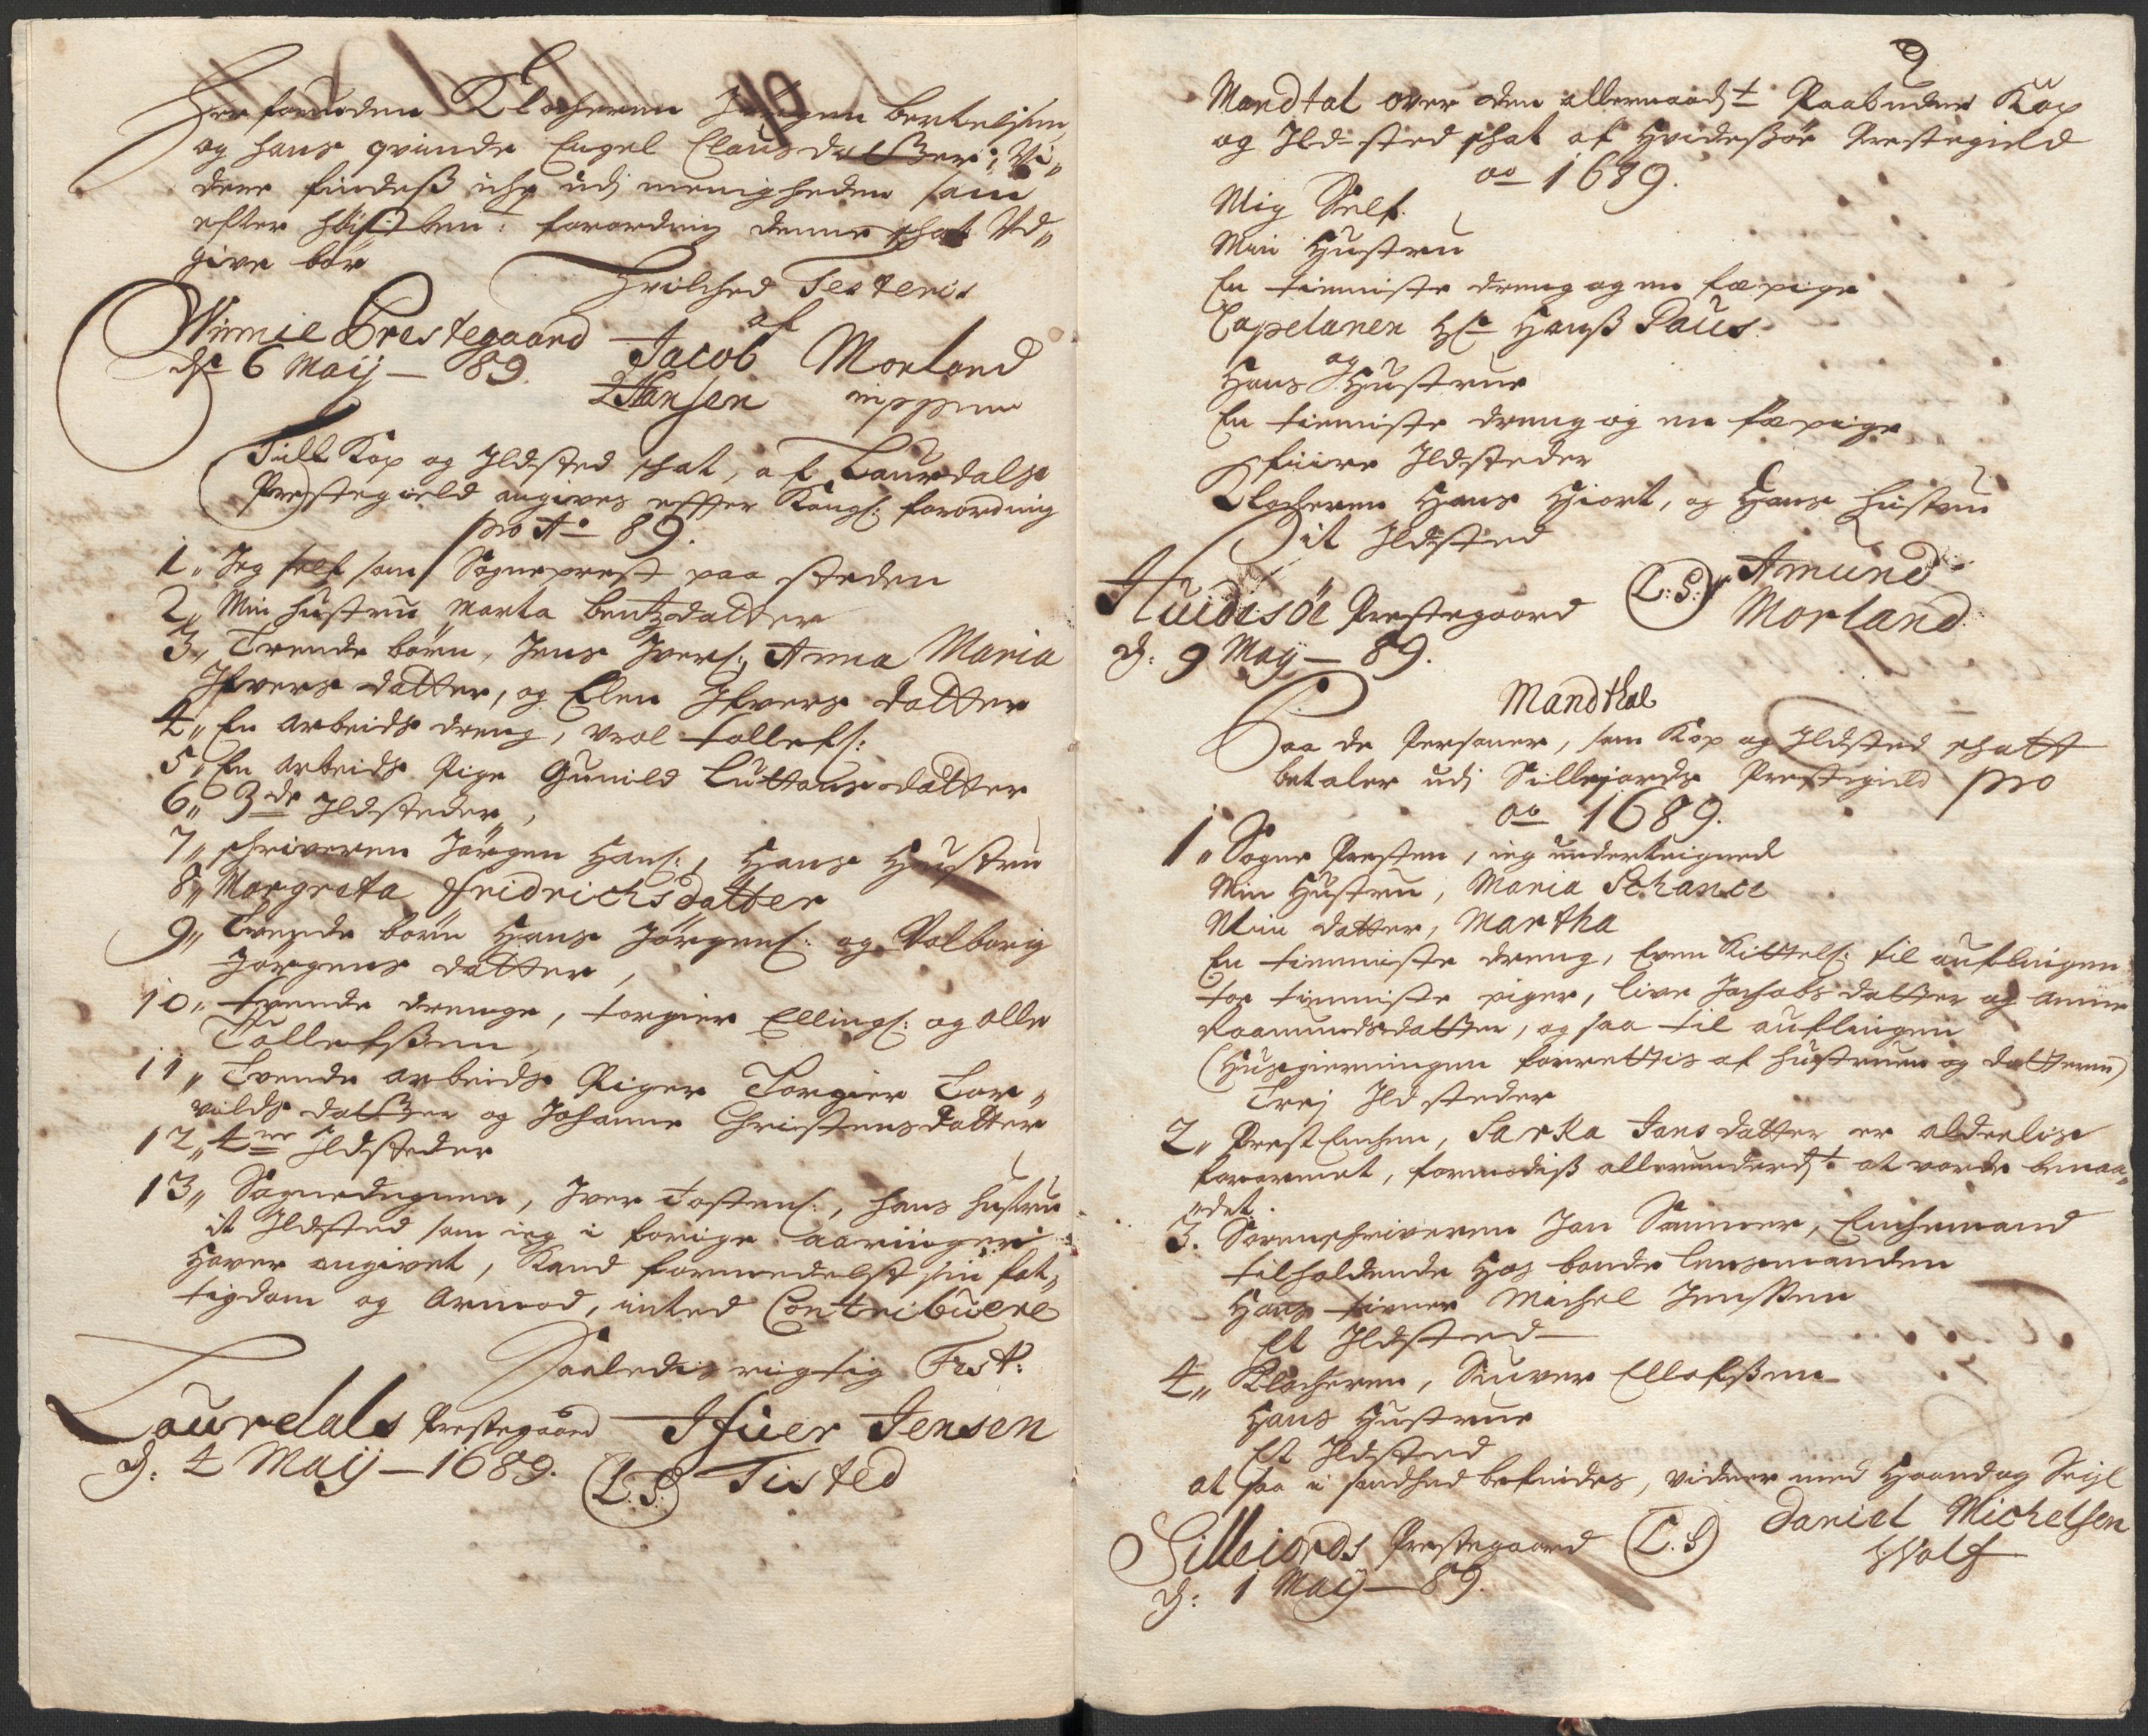 Herforuden Klocheren Jørgen Bertelsen
og hans qvinde Engel Clausdatter, Vi„
dere findeß iche udj menigheden som
efter forordning denne schat Ud„
give bør
Hvilched Testeris
af
Winnie Prestegaard Jacob Morland
d 6 Maij — 89. Hansen mppria
Till Kop og Ildsted schat, af Laurdals
Prestegield angives effter Kongl: forordning
pro Ao 89.
1„ Jeg self som Sogneprest paa steden
2„ Min Hustru Marta Bentzdatter
3„ Trende børn, Jens Ivers:, Anna Maria
Ifvers datter, og Elen Ifvers datter
4„ En arbeids dreng, Vrol Tollefs:
5„ En arbeids Pige Gunild Luttans datter
6„ 3de Ildsteder,
7„ schriveren Jørgen Hans:, Hans Hustru
8„ Margreta Fridrichsdatter
9„ Tvende børn Hans Jørgens: og Valborig
Jørgens datter,
10„ tvende drenge, Torgier Ellings: og Olle
Tollefsßen
11„ Tvende arbeids Piger Torgier Tor„
vilds datter og Johanne Christens datter
12„ 4re Ildsteder
13„ Sognedegnen, Iver Tostens:, hans hustru
it Ildsted som ieg i forige aaringer
Hafver angivet, Kand formedelst sin fat„
tigdom og Armod, inted Contribuere
Saaledis rigtig Test:
Laurdals Prestegaard Ifuer Jensen
D: 4 Maij — 1689. (L.S.) Tisted
9
Mandtal over den allernaadst Paabudne Kop
og Ild-sted schat af Hvideßøe Prestegield
ao 1689.
Mig Self.
Min Hustru
En tienniste dreng og en fæpige
Capelanen Hr Hanß Paus
og
Hans Hustrue
En tienniste dreng og en fæpige
fiire Ildsteder
Klocheren Hans Hiort, og Hans hustru
it Ildsted
Huidesøe Prestegaard (L:S:) Amund
D: 9 Maij — 89. Morland
Mandthal
Paa de Personer, som Kop og Ildsted schatt
betaler udj Sillejords Prestegield pro
ao 1689.
1„ Sogne Presten, ieg underteigned
Min Hustru, Maria Schance
Min datter, Martha
En tienniste dreng, Even Kittels: til auflingen
toe tienniste piger, Live Jachobs datter og Anne
Raamundsdatter, og saa til auflingen
(Husgierningen forrettis af hustruen og datteren)
Trej Ildsteder
2„ Prest Enchen, Sarha Jans datter er alderlis
forarmet, formodiß allerunderdt at vorde benaa„
det.
3. Sorenschriveren Jan Sanner, Enchemand
tilholdende Hos bonde lensmanden
Hans tiener Michel Jenssen
Et Ildsted
4„ Klocheren, Siuver Ellefsßen
Hans Hustrue
Et Ildsted
at saa i sandhed befindes, vidner med Haand og Seigl
Sillejords Prestegaard (L.S) Daniel Michelsen
D: 1 Maij — 89. Wolf